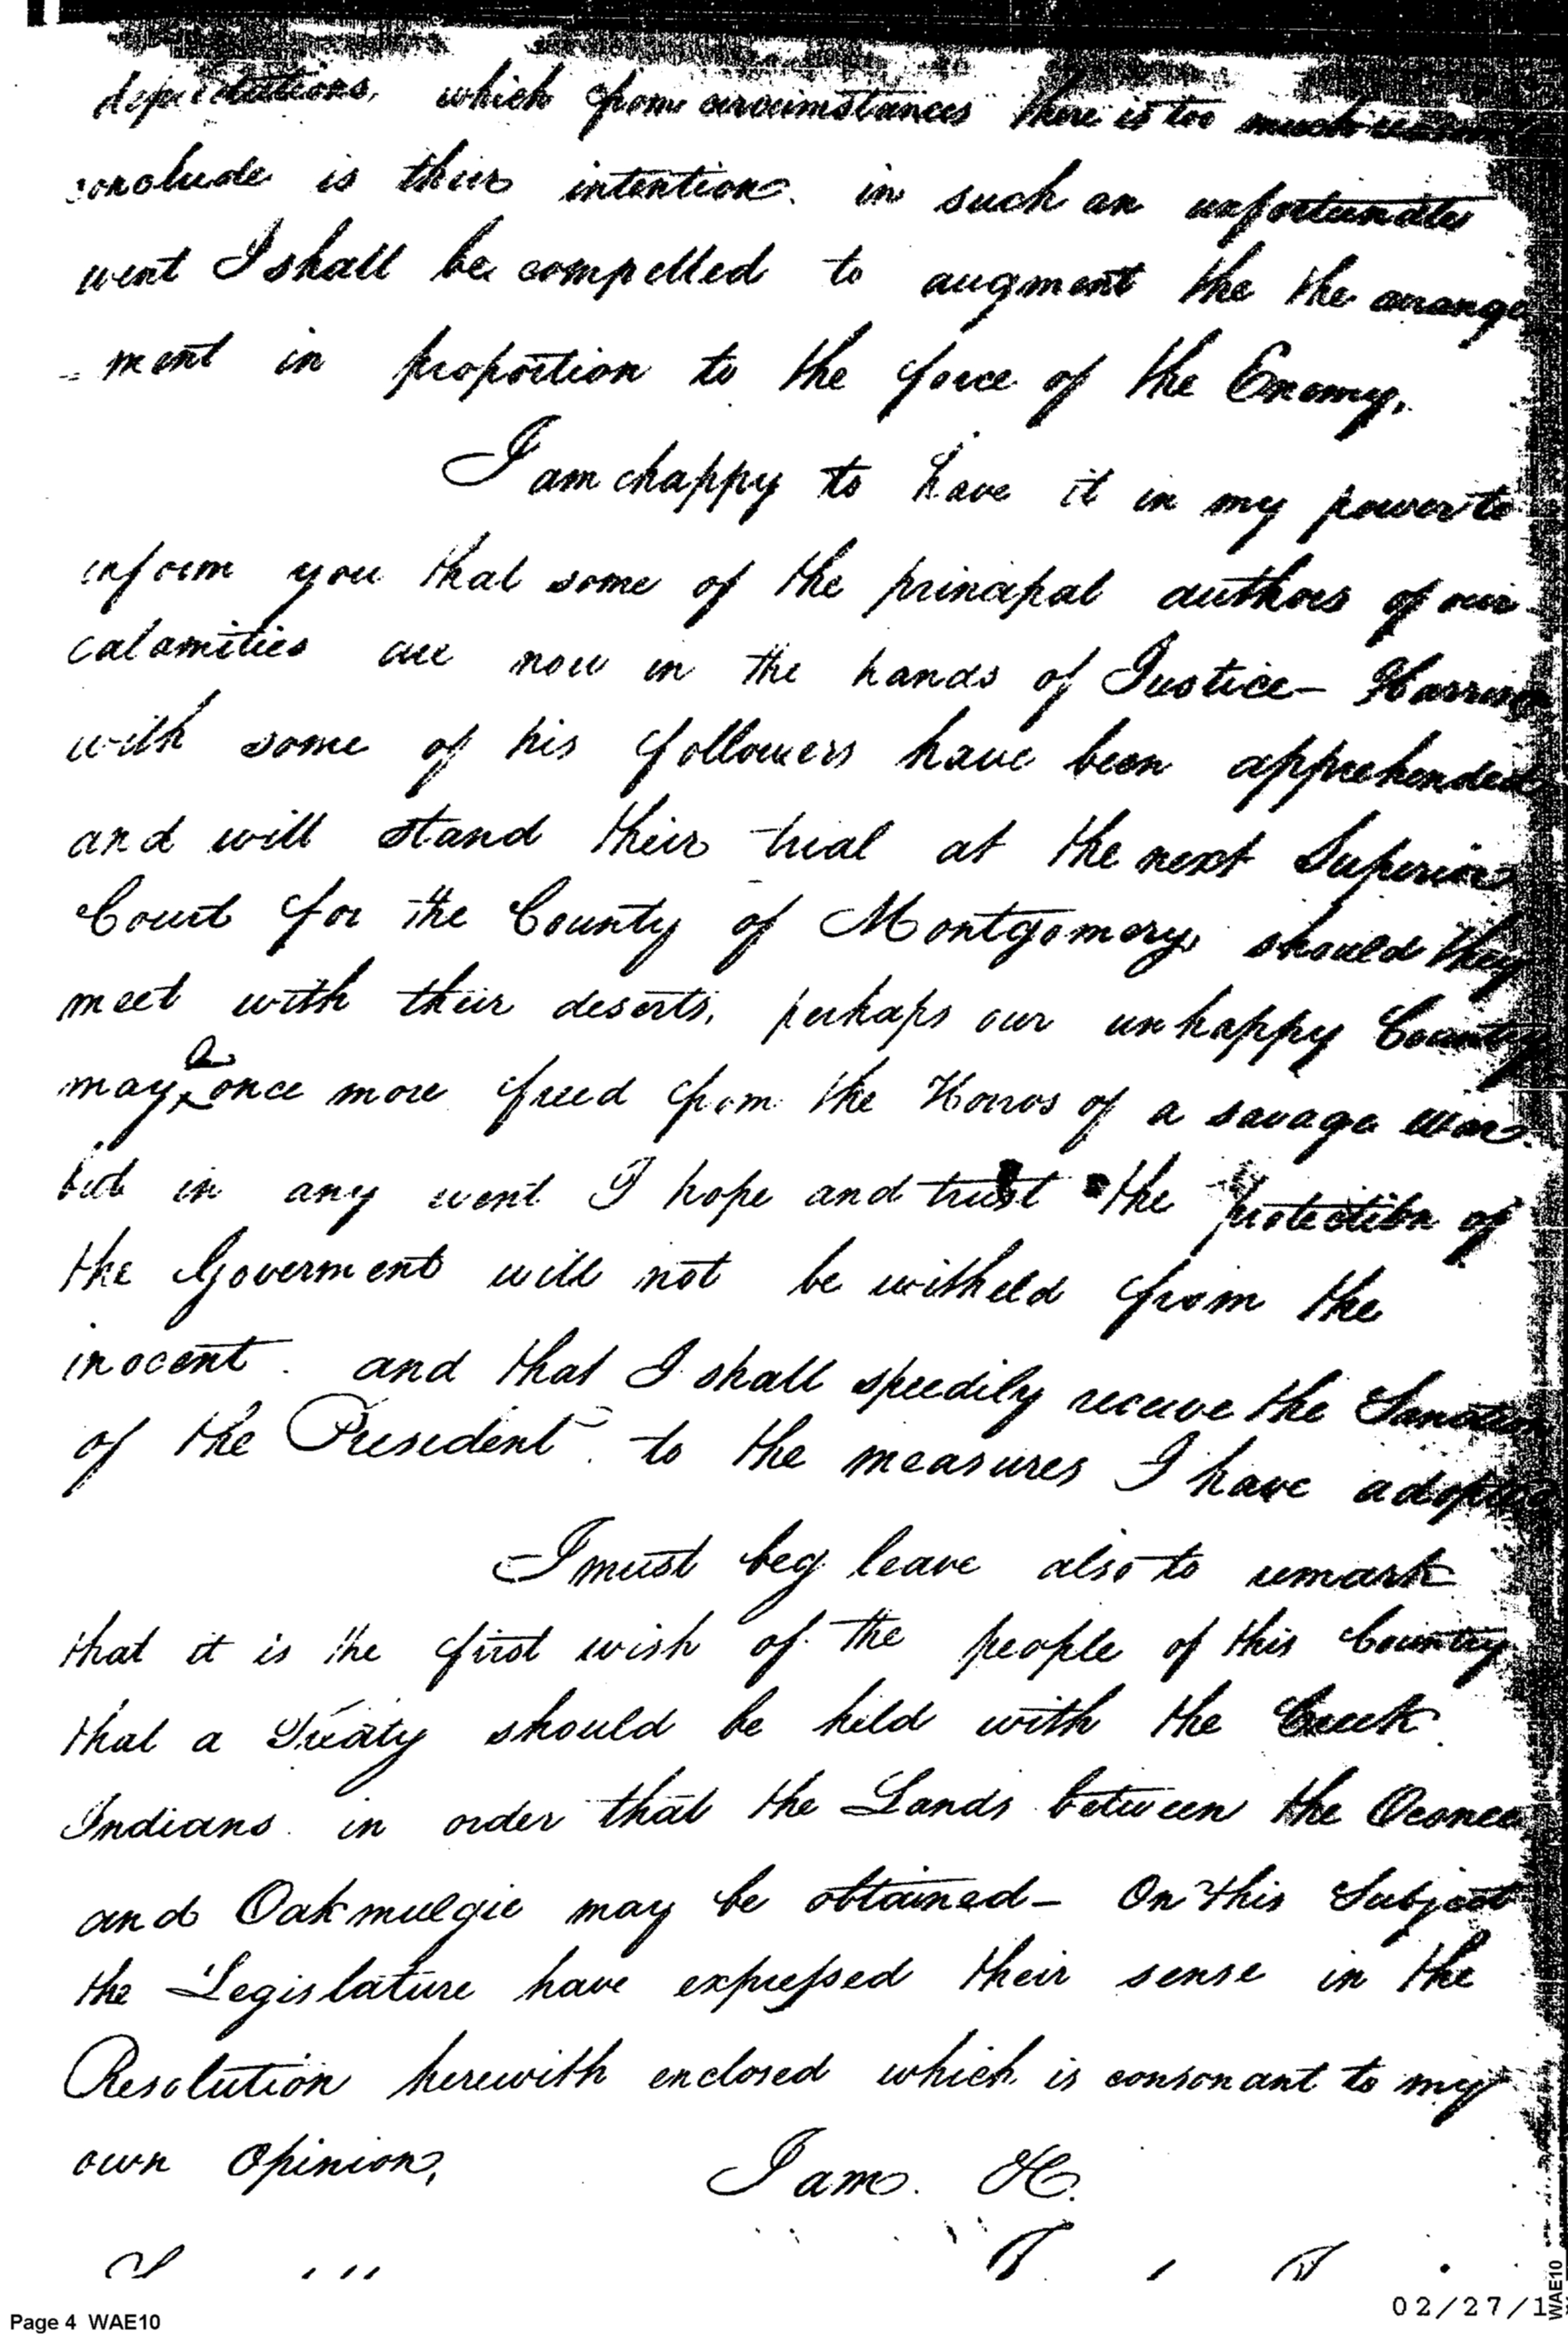 depredations, which from circumstances there is too much reason
conclude is their intention. in such an unfortunate
event I shall be compelled to augment the the arrange
= ment in proportion to the force of the Enemy,
I am happy to have it in my power to
inform you that some of the principal authors of our
calamities are now in the hands of Justice — Harrison
with some of his followers have been apprehended
and will stand their trial at the next Superior
Court for the County of Montgomery, should they
meet with their deserts, perhaps our unhappy County
may be once more freed from the Horros of a savage War.
but in any event I hope and trust the protection of
the Goverment will not be witheld from the
inocent. and that I shall speedily receive the Sanction
of the President. to the measures I have adopted
I must beg leave also to remark
that it is the first wish of the people of this Country
that a Treaty should be held with the Creek
Indians. in order that the Lands between the Oconee
and Oakmulgie may be obtained — On this Subject
the Legislature have expressed their sense in the
Resolution herewith enclosed which is consonant to my
own Opinion,
I am. &c.
Page 4 WAE10
02/27/1
WAE10